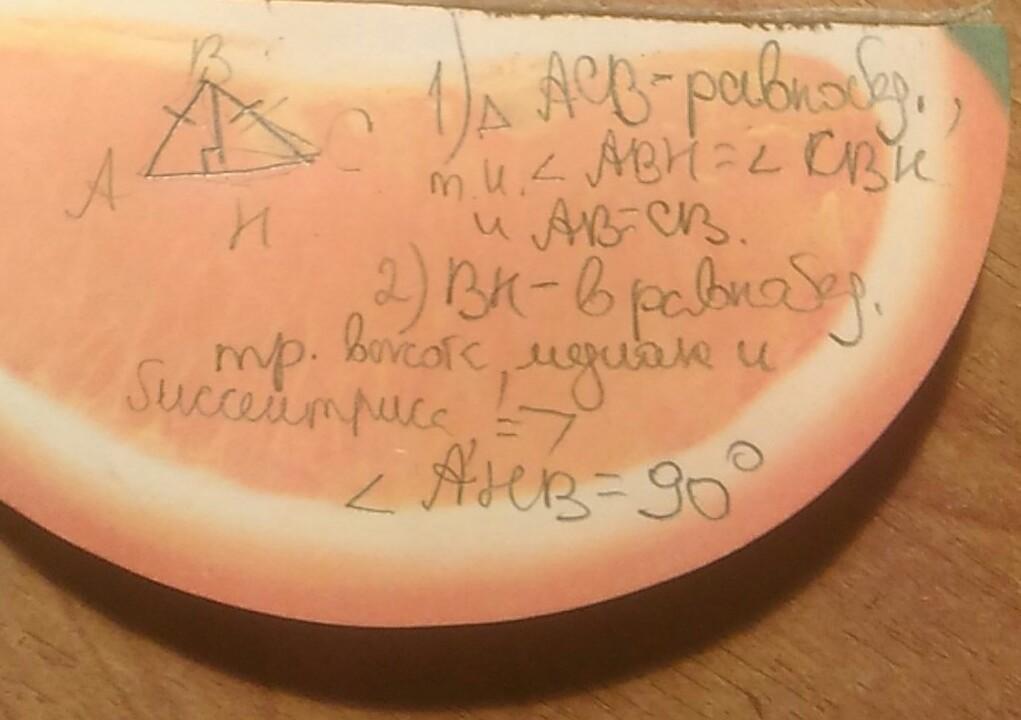 B
A
C
H
1) Δ ACB-равнобед.,
т.к. < ABH = < CBH
и AB=CB.
2) BH - в равнобед.
тр. высота, медиана и
биссектриса, =>
< AHB = 90°